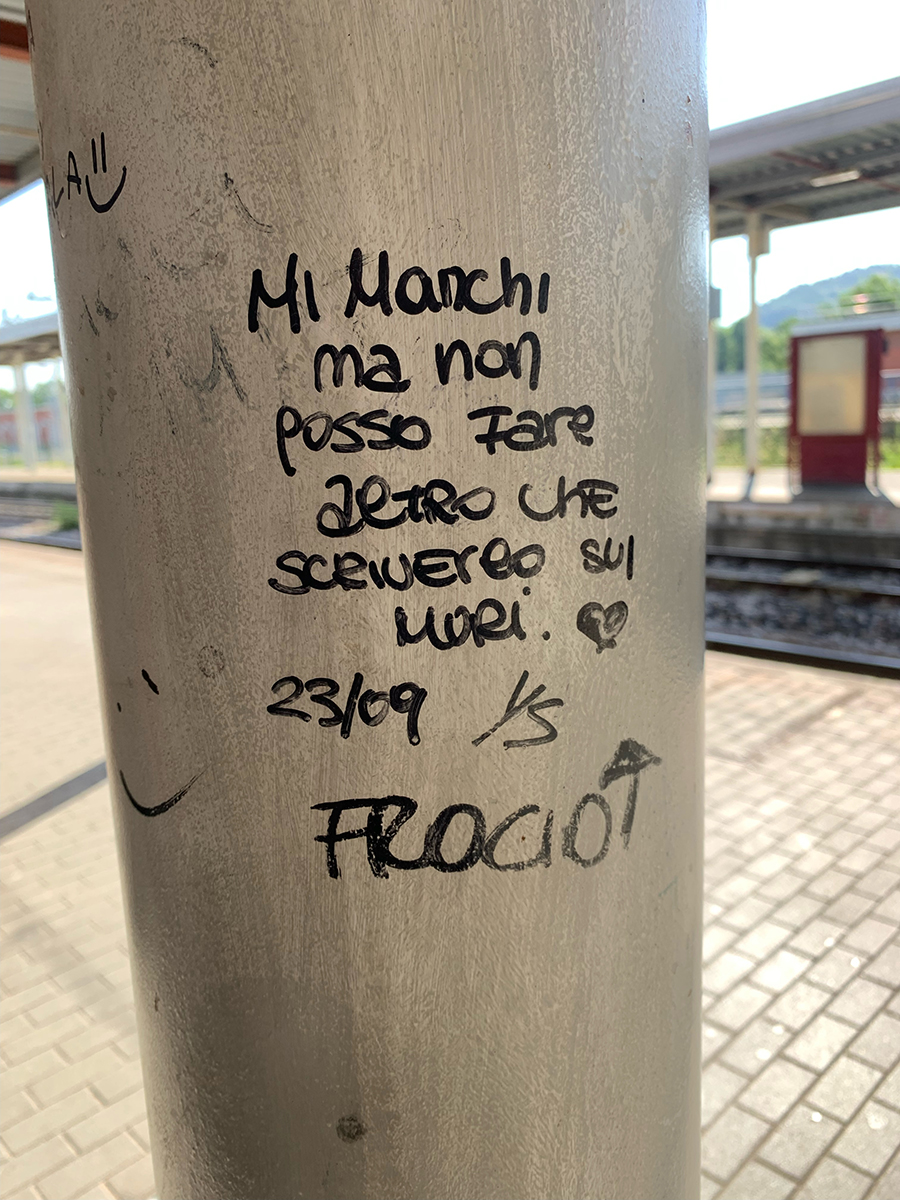 LA
Mi Manchi
ma non
posso Fare
altro che
scriverlo sui
muri. ♥
23/09
FROCIO↑